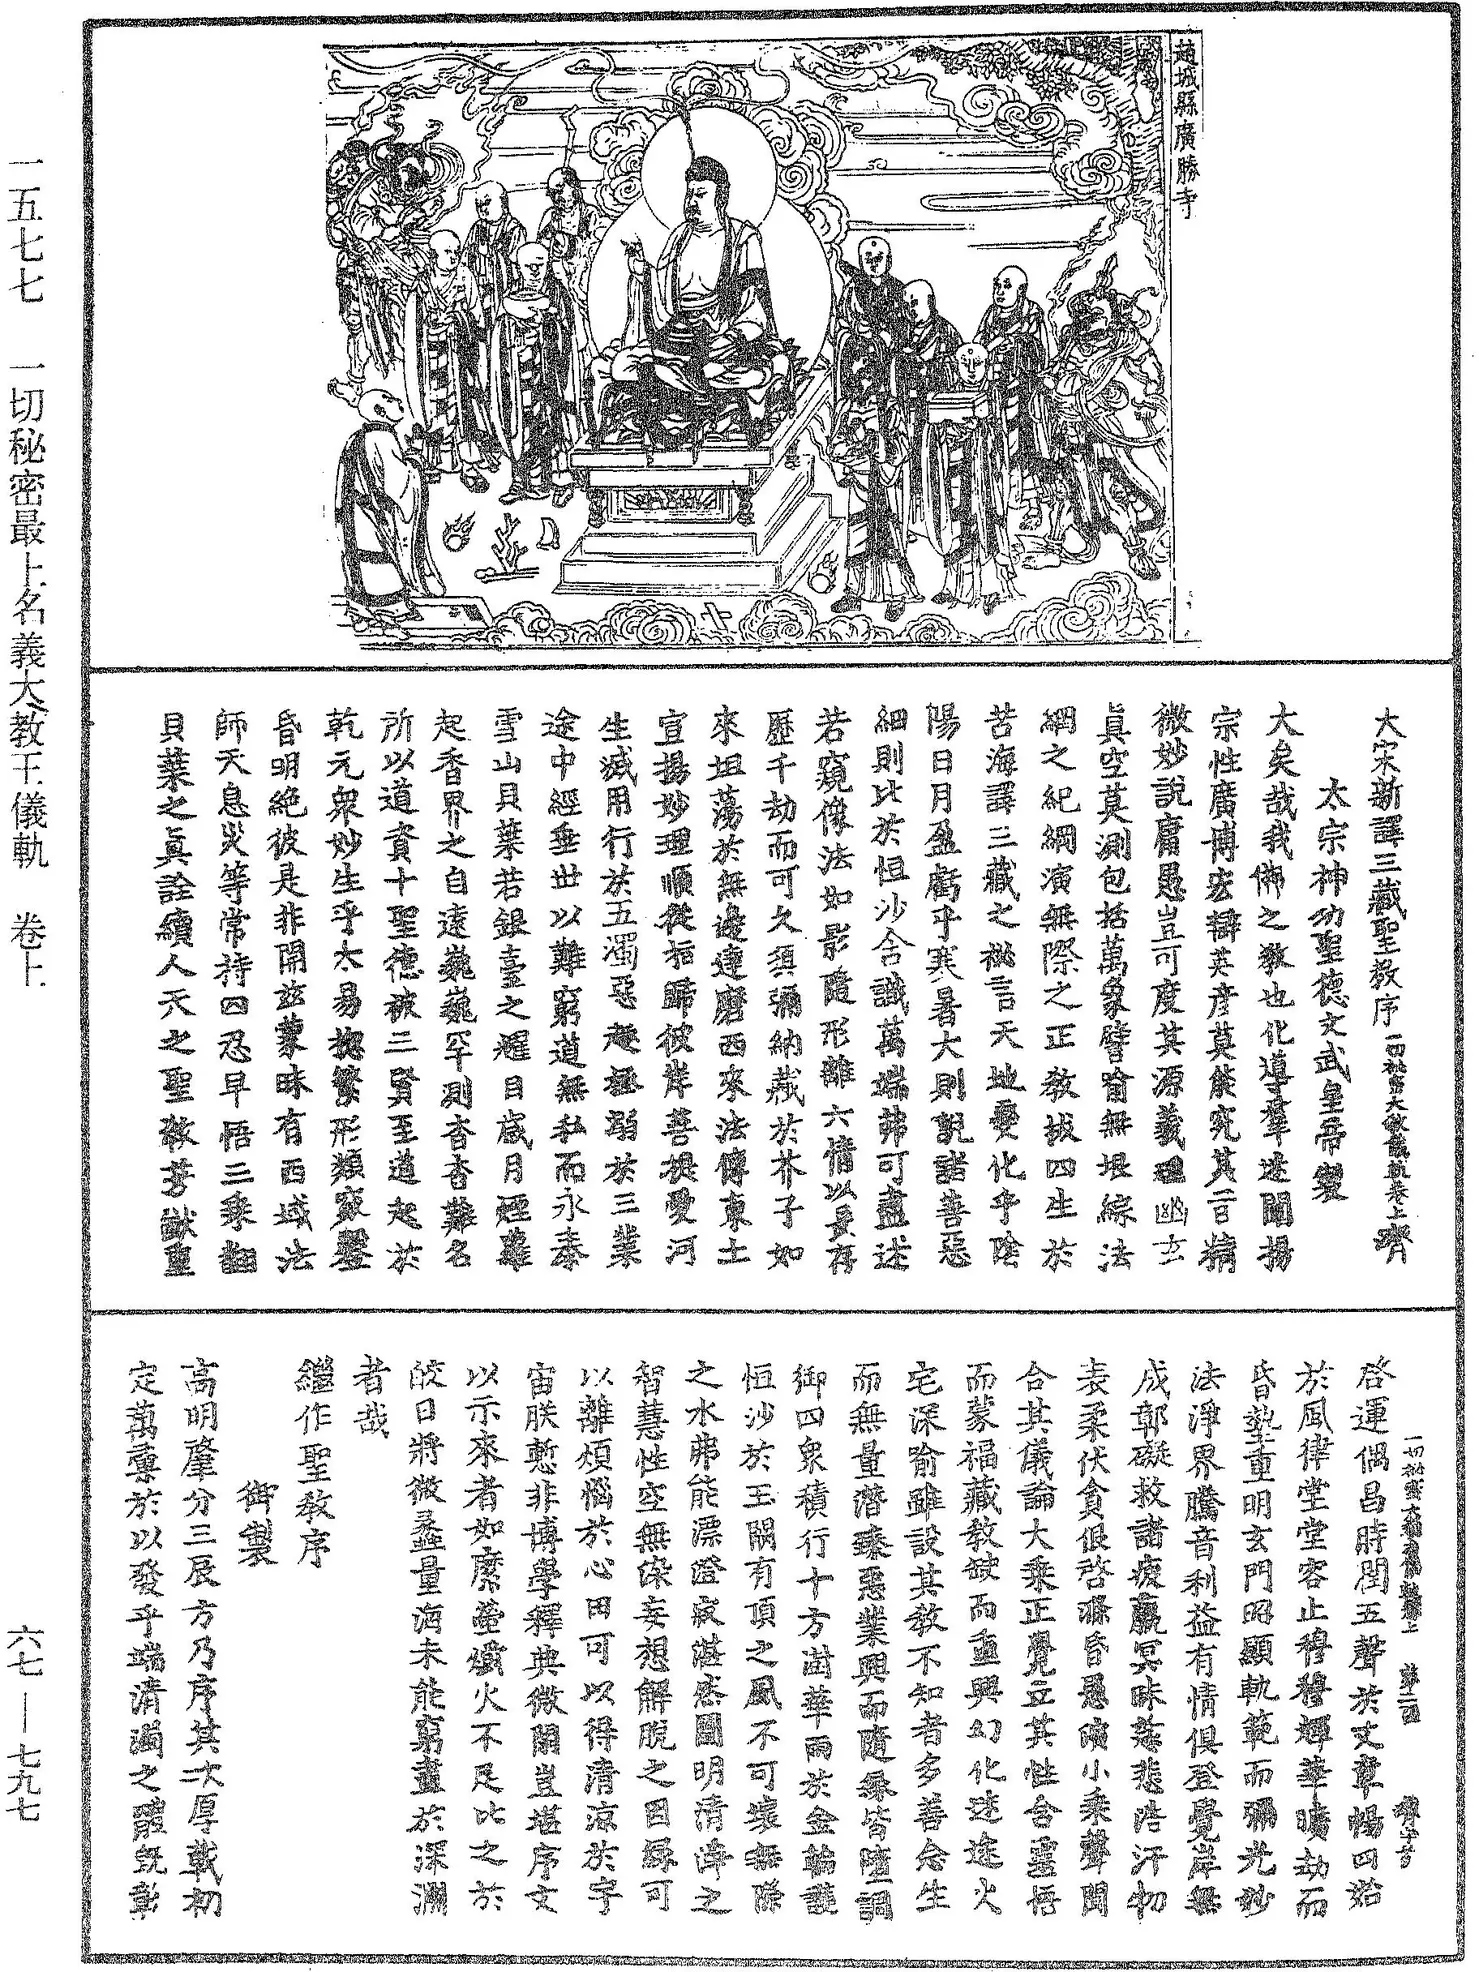 趙城縣廣勝寺
大宋新譯三藏聖教序
太宗神功聖德文武皇帝製
大矣哉我佛之教也化導羣迷闡揚
宗性廣博宏辯英彥莫能究其旨精
微妙說庸愚豈可度其源義理幽玄
真空莫測包括萬象譬喻無垠綜法
綱之紀綱演無際之正教拔四生於
苦海譯三藏之祕言天地變化乎陰
陽日月盈虧乎寒暑大則說諸善惡
細則比於恒沙含識萬端弗可盡述
若窺像法如影隨形離六情以長存
歷千劫而可久須彌納藏於芥子如
來坦蕩於無邊達磨西來法傳東土
宣揚妙理順從指歸彼岸菩提愛河
生滅用行於五濁惡趣拯溺於三業
途中經垂世以難窮道無私而永泰
雪山貝葉若銀臺之耀日歲月煙蘿
起香界之自遠巍巍罕測杳杳難名
所以道資十聖德被三賢至道起於
乾元衆妙生乎太易揔繁形類竅鑿
昏明絶彼是非開兹蒙昧有西域法
師天息災等常持四忍早悟三乘翻
貝葉之真詮續人天之聖教芳猷重
啓運偶昌時閏五聲於文章暢四始
於風律堂堂容止穆穆輝華曠劫而
昏墊重明玄門昭顯軌範而彌光妙
法淨界騰音利益有情俱登覺岸無
成鄣礙救諸疲羸冥昧慈悲浩汗物
表柔伏貪佷啓滌昏愚演小乘聲聞
合其儀論大乘正覺立其性含靈悟
而蒙福藏教缺而重興幻化迷途火
宅深喻雖設其教不知者多善念生
而無量潛臻惡業興而隨緣皆墮調
御四衆積行十方澍華雨於金輪護
恒沙於玉闕有頂之風不可壞無際
之水弗能漂澄寂湛然圓明清淨之
智慧性空無染妄想解脫之因緣可
以離煩惱於心田可以得清涼於宇
宙朕慙非博學釋典微閑豈堪序文
以示來者如縻螢爝火不足比之於
皎日將微蠡量海未能窮盡於深淵
者哉
繼作聖教序
御製
高明肇分三辰方乃序其次厚載初
定萬彙於以發乎端清濁之體旣彰
一五七七　一切秘密最上名義大教王儀軌　卷上
六七—七九七